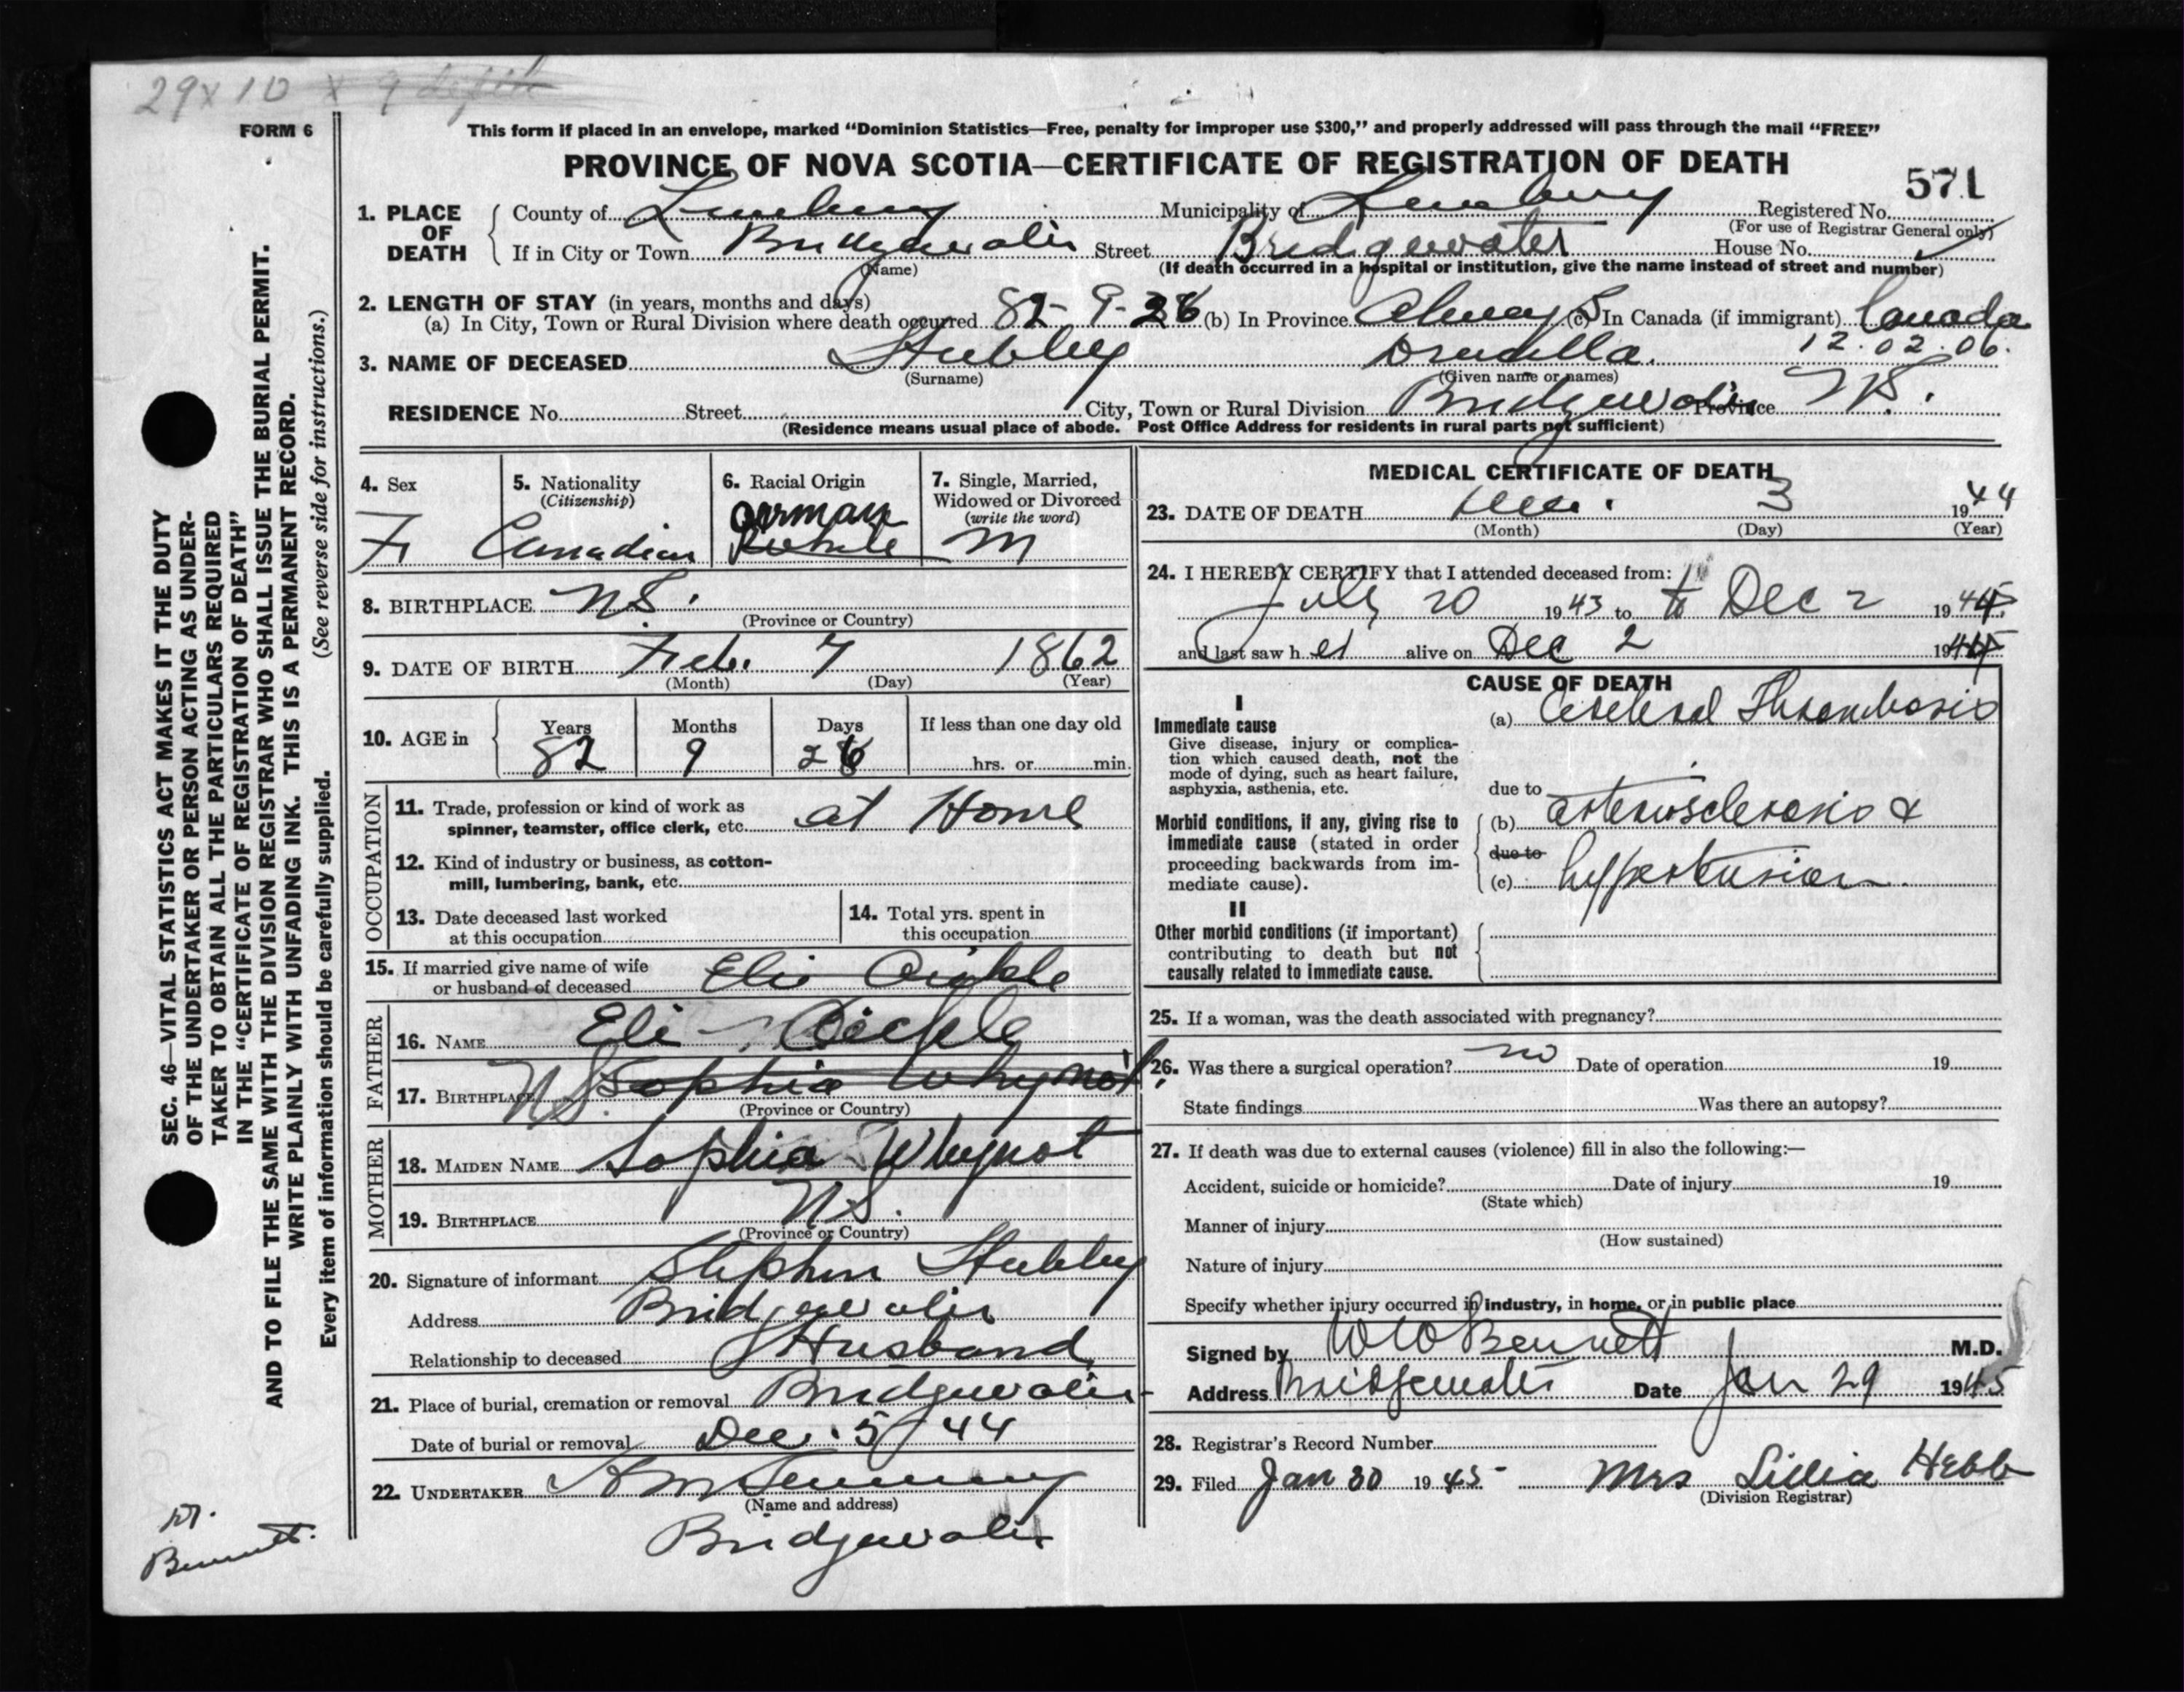 29 x 10 x 9 depth
FORM 6
This form if placed in an envelope, marked “Dominion Statistics—Free, penalty for improper use $300,” and properly addressed will pass through the mail “FREE”
PROVINCE OF NOVA SCOTIA—CERTIFICATE OF REGISTRATION OF DEATH
571
1. PLACE OF DEATH County of Lunenburg Municipality of Lunenburg Registered No.
(For use of Registrar General only)
If in City or Town Bridgewater Street Bridgewater House No.
(Name)
(If death occurred in a hospital or institution, give the name instead of street and number)
2. LENGTH OF STAY (in years, months and days)
(a) In City, Town or Rural Division where death occurred 82-9-26 (b) In Province Always (c) In Canada (if immigrant) Canada
12.02.06.
3. NAME OF DECEASED Stubley Drucilla.
(Surname) (Given name or names)
RESIDENCE No. Street City, Town or Rural Division Bridgewater Province N.S.
(Residence means usual place of abode. Post Office Address for residents in rural parts not sufficient)
4. Sex F.
5. Nationality (Citizenship) Canadian
6. Racial Origin German White
7. Single, Married, Widowed or Divorced (write the word) M
8. BIRTHPLACE N.S.
(Province or Country)
9. DATE OF BIRTH Feb. 7 1862
(Month) (Day) (Year)
10. AGE in Years 82 Months 9 Days 26 If less than one day old hrs. or min.
OCCUPATION
11. Trade, profession or kind of work as spinner, teamster, office clerk, etc. at Home
12. Kind of industry or business, as cotton-mill, lumbering, bank, etc.
13. Date deceased last worked at this occupation
14. Total yrs. spent in this occupation
15. If married give name of wife or husband of deceased Eli
FATHER
16. NAME Eli
17. BIRTHPLACE N.S. Sophia Whynot
(Province or Country)
MOTHER
18. MAIDEN NAME Sophia Whynot
19. BIRTHPLACE N.S.
(Province or Country)
20. Signature of informant Stephen Stubley
Address Bridgewater
Relationship to deceased Husband
21. Place of burial, cremation or removal Bridgewater
Date of burial or removal Dec. 5/44
22. UNDERTAKER
(Name and address)
Bridgewater
MEDICAL CERTIFICATE OF DEATH
23. DATE OF DEATH Dec. 3 1944
(Month) (Day) (Year)
24. I HEREBY CERTIFY that I attended deceased from:
July 20 1943 to to Dec 2 1944
and last saw her alive on Dec 2 1944
CAUSE OF DEATH
I
Immediate cause
Give disease, injury or complication which caused death, not the mode of dying, such as heart failure, asphyxia, asthenia, etc.
(a) Cerebral Thrombosis
due to
Morbid conditions, if any, giving rise to immediate cause (stated in order proceeding backwards from immediate cause).
(b) arteriosclerosis &
due to
(c) hypertension.
II
Other morbid conditions (if important) contributing to death but not causally related to immediate cause.
25. If a woman, was the death associated with pregnancy?
26. Was there a surgical operation? no Date of operation 19
State findings Was there an autopsy?
27. If death was due to external causes (violence) fill in also the following:—
Accident, suicide or homicide? Date of injury 19
(State which)
Manner of injury
(How sustained)
Nature of injury
Specify whether injury occurred in industry, in home, or in public place
Signed by W W Bennett M.D.
Address Bridgewater Date Jan 29 1945
28. Registrar's Record Number
29. Filed Jan 30 1945- Mrs Lillia Hebb
(Division Registrar)
SEC. 46—VITAL STATISTICS ACT MAKES IT THE DUTY
OF THE UNDERTAKER OR PERSON ACTING AS UNDER-
TAKER TO OBTAIN ALL THE PARTICULARS REQUIRED
IN THE “CERTIFICATE OF REGISTRATION OF DEATH”
AND TO FILE THE SAME WITH THE DIVISION REGISTRAR WHO SHALL ISSUE THE BURIAL PERMIT.
WRITE PLAINLY WITH UNFADING INK. THIS IS A PERMANENT RECORD.
(See reverse side for instructions.)
Every item of information should be carefully supplied.
Bennett.